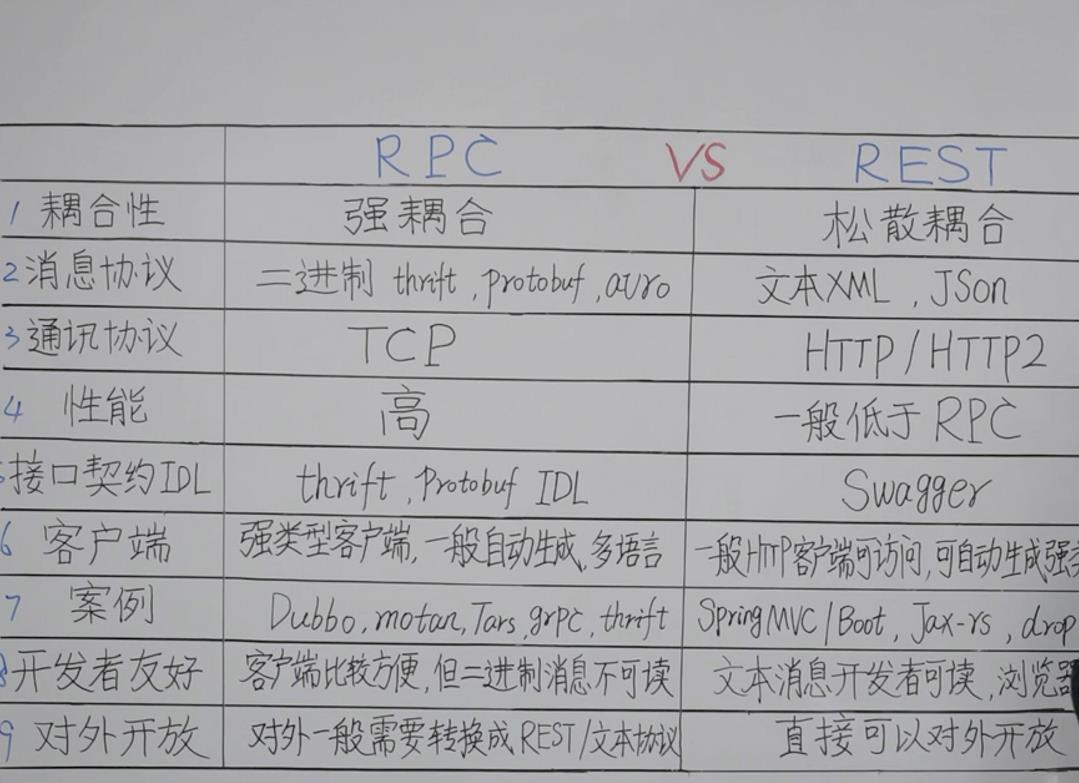 RPC VS REST
1 耦合性 强耦合 松散耦合
2 消息协议 二进制 thrift, protobuf, avro 文本XML, JSon
3 通讯协议 TCP HTTP/HTTP2
4 性能 高 一般低于RPC
5 接口契约IDL thrift, Protobuf IDL Swagger
6 客户端 强类型客户端, 一般自动生成, 多语言 一般HTTP客户端可访问, 可自动生成强类
7 案例 Dubbo, motan, Tars, grpc, thrift SpringMVC/Boot, Jax-rs, drop
8 开发者友好 客户端比较方便, 但二进制消息不可读 文本消息开发者可读, 浏览器
9 对外开放 对外一般需要转换成REST/文本协议 直接可以对外开放